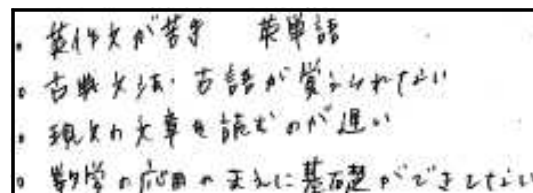 ・英作文が苦手 英単語
・古典文法・古語が覚えられない
・現文の文章を読むのが遅い
・数学の応用のまえに基礎ができてない